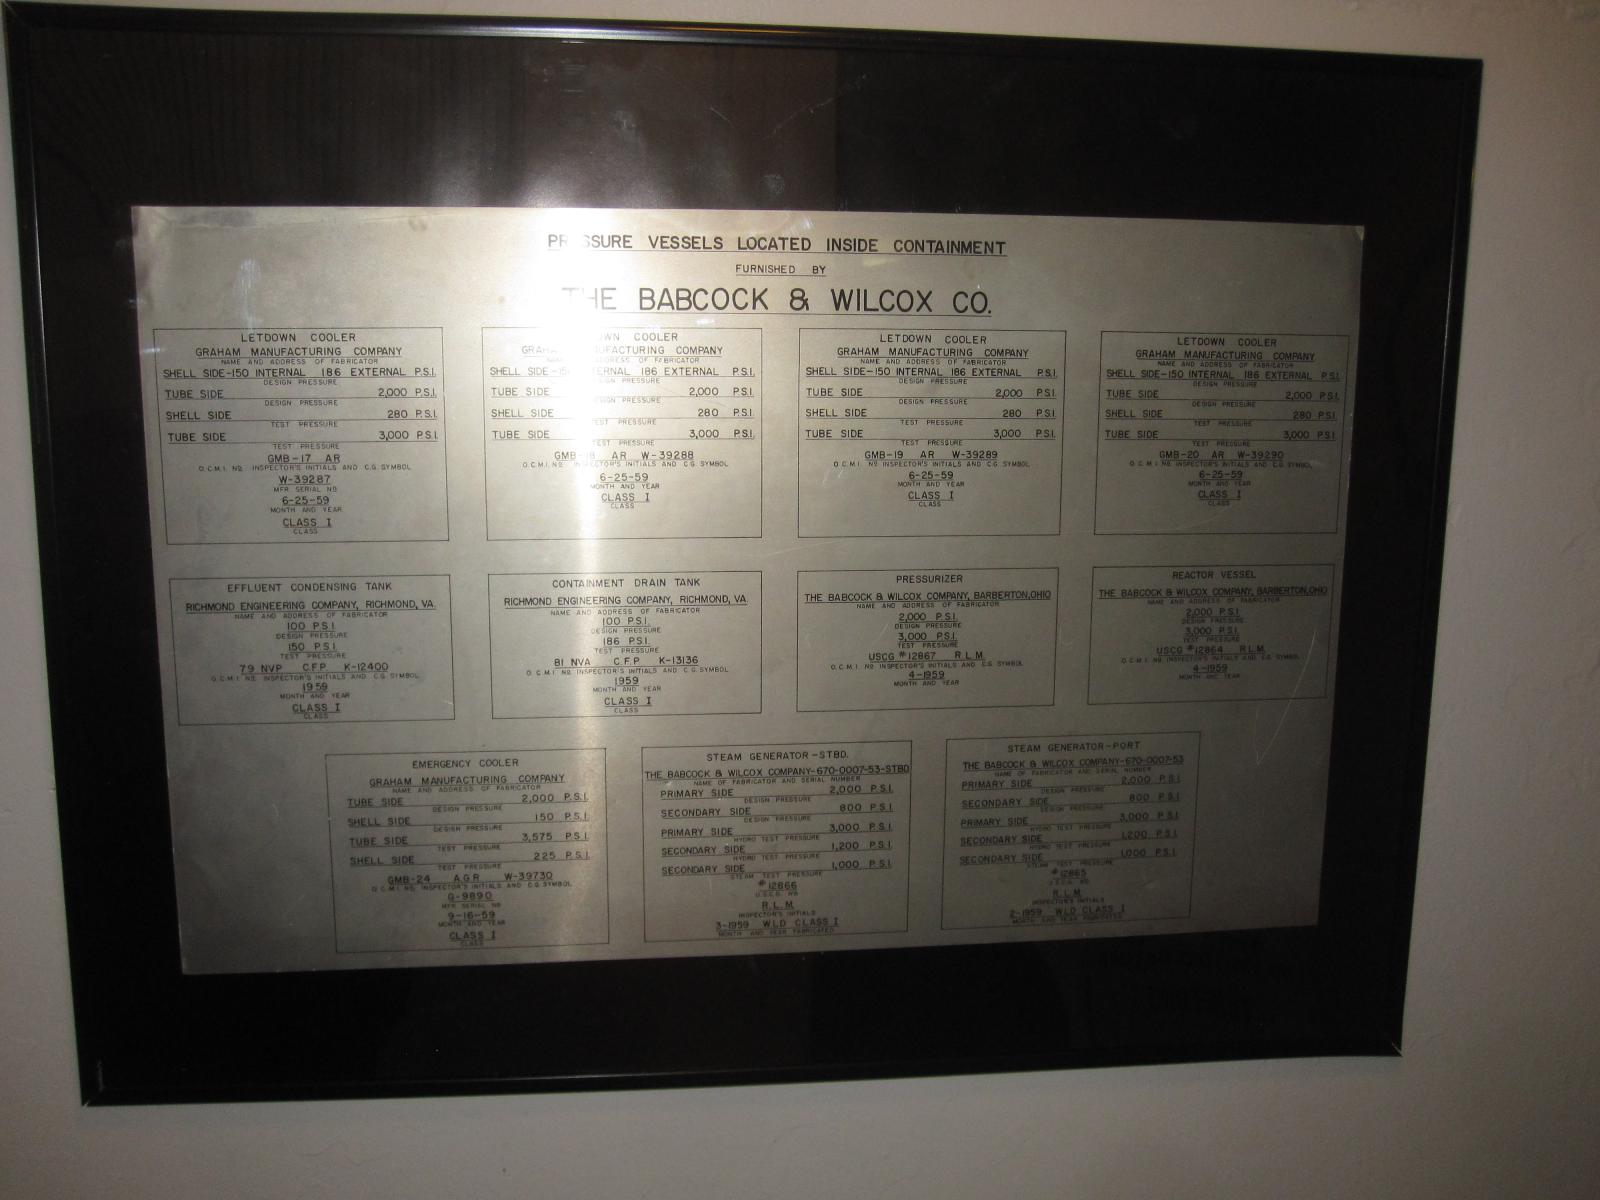 PRESSURE VESSELS LOCATED INSIDE CONTAINMENT
FURNISHED BY
THE BABCOCK & WILCOX CO.
LETDOWN COOLER
GRAHAM MANUFACTURING COMPANY
NAME AND ADDRESS OF FABRICATOR
SHELL SIDE-150 INTERNAL 186 EXTERNAL P.S.I.
DESIGN PRESSURE
TUBE SIDE 2,000 P.S.I.
DESIGN PRESSURE
SHELL SIDE 280 P.S.I.
TEST PRESSURE
TUBE SIDE 3,000 P.S.I.
TEST PRESSURE
GMB-17 AR
O.C.M.I. Nº INSPECTOR'S INITIALS AND C.G. SYMBOL
W-39287
MFR SERIAL Nº
6-25-59
MONTH AND YEAR
CLASS I
CLASS
DOWN COOLER
GRAHAM MANUFACTURING COMPANY
NAME ADDRESS OF FABRICATOR
SHELL SIDE-150 INTERNAL 186 EXTERNAL P.S.I.
DESIGN PRESSURE
TUBE SIDE 2,000 P.S.I.
DESIGN PRESSURE
SHELL SIDE 280 P.S.I.
TEST PRESSURE
TUBE SIDE 3,000 P.S.I.
TEST PRESSURE
GMB-18 AR W-39288
O.C.M.I. Nº INSPECTOR'S INITIALS AND C.G. SYMBOL
6-25-59
MONTH AND YEAR
CLASS I
CLASS
LETDOWN COOLER
GRAHAM MANUFACTURING COMPANY
NAME AND ADDRESS OF FABRICATOR
SHELL SIDE-150 INTERNAL 186 EXTERNAL P.S.I.
DESIGN PRESSURE
TUBE SIDE 2,000 P.S.I.
DESIGN PRESSURE
SHELL SIDE 280 P.S.I.
TEST PRESSURE
TUBE SIDE 3,000 P.S.I.
TEST PRESSURE
GMB-19 AR W-39289
O.C.M.I. Nº INSPECTOR'S INITIALS AND C.G. SYMBOL
6-25-59
MONTH AND YEAR
CLASS I
CLASS
LETDOWN COOLER
GRAHAM MANUFACTURING COMPANY
NAME AND ADDRESS OF FABRICATOR
SHELL SIDE-150 INTERNAL 186 EXTERNAL P.S.I.
DESIGN PRESSURE
TUBE SIDE 2,000 P.S.I.
DESIGN PRESSURE
SHELL SIDE 280 P.S.I.
TEST PRESSURE
TUBE SIDE 3,000 P.S.I.
TEST PRESSURE
GMB-20 AR W-39290
O.C.M.I. Nº INSPECTOR'S INITIALS AND C.G. SYMBOL
6-25-59
MONTH AND YEAR
CLASS I
CLASS
EFFLUENT CONDENSING TANK
RICHMOND ENGINEERING COMPANY, RICHMOND, VA.
NAME AND ADDRESS OF FABRICATOR
100 P.S.I.
DESIGN PRESSURE
150 P.S.I.
TEST PRESSURE
79 NVP C.F.P K-12400
O.C.M.I. Nº INSPECTOR'S INITIALS AND C.G. SYMBOL
1959
MONTH AND YEAR
CLASS I
CLASS
CONTAINMENT DRAIN TANK
RICHMOND ENGINEERING COMPANY, RICHMOND, VA.
NAME AND ADDRESS OF FABRICATOR
100 P.S.I.
DESIGN PRESSURE
186 P.S.I.
TEST PRESSURE
81 NVA C.F.P K-13136
O.C.M.I. Nº INSPECTOR'S INITIALS AND C.G. SYMBOL
1959
MONTH AND YEAR
CLASS I
CLASS
PRESSURIZER
THE BABCOCK & WILCOX COMPANY, BARBERTON, OHIO
NAME AND ADDRESS OF FABRICATOR
2,000 P.S.I.
DESIGN PRESSURE
3,000 P.S.I.
TEST PRESSURE
USCG #12867 R.L.M.
O.C.M.I. Nº INSPECTOR'S INITIALS AND C.G. SYMBOL
4-1959
MONTH AND YEAR
REACTOR VESSEL
THE BABCOCK & WILCOX COMPANY, BARBERTON, OHIO
NAME AND ADDRESS OF FABRICATOR
2,000 P.S.I.
DESIGN PRESSURE
3,000 P.S.I.
TEST PRESSURE
USCG #12864 R.L.M.
O.C.M.I. Nº INSPECTOR'S INITIALS AND C.G. SYMBOL
4-1959
MONTH AND YEAR
EMERGENCY COOLER
GRAHAM MANUFACTURING COMPANY
NAME AND ADDRESS OF FABRICATOR
TUBE SIDE 2,000 P.S.I.
DESIGN PRESSURE
SHELL SIDE 150 P.S.I.
DESIGN PRESSURE
TUBE SIDE 3,575 P.S.I.
TEST PRESSURE
SHELL SIDE 225 P.S.I.
TEST PRESSURE
GMB-24 A.G.R. W-39730
O.C.M.I. Nº INSPECTOR'S INITIALS AND C.G. SYMBOL
G-9890
MFR SERIAL Nº
9-16-59
MONTH AND YEAR
CLASS I
CLASS
STEAM GENERATOR-STBD.
THE BABCOCK & WILCOX COMPANY-670-0007-53-STBD
NAME OF FABRICATOR AND SERIAL NUMBER
PRIMARY SIDE 2,000 P.S.I.
DESIGN PRESSURE
SECONDARY SIDE 800 P.S.I.
DESIGN PRESSURE
PRIMARY SIDE 3,000 P.S.I.
HYDRO TEST PRESSURE
SECONDARY SIDE 1,200 P.S.I.
HYDRO TEST PRESSURE
SECONDARY SIDE 1,000 P.S.I.
STEAM TEST PRESSURE
#12866
U.S.C.G. Nº
R.L.M.
INSPECTOR'S INITIALS
3-1959 WLD CLASS I
MONTH AND YEAR FABRICATED
STEAM GENERATOR-PORT
THE BABCOCK & WILCOX COMPANY-670-0007-53
NAME OF FABRICATOR AND SERIAL NUMBER
PRIMARY SIDE 2,000 P.S.I.
DESIGN PRESSURE
SECONDARY SIDE 800 P.S.I.
DESIGN PRESSURE
PRIMARY SIDE 3,000 P.S.I.
HYDRO TEST PRESSURE
SECONDARY SIDE 1,200 P.S.I.
HYDRO TEST PRESSURE
SECONDARY SIDE 1,000 P.S.I.
STEAM TEST PRESSURE
#12865
U.S.C.G. Nº
R.L.M.
INSPECTOR'S INITIALS
2-1959 WLD CLASS I
MONTH AND YEAR FABRICATED